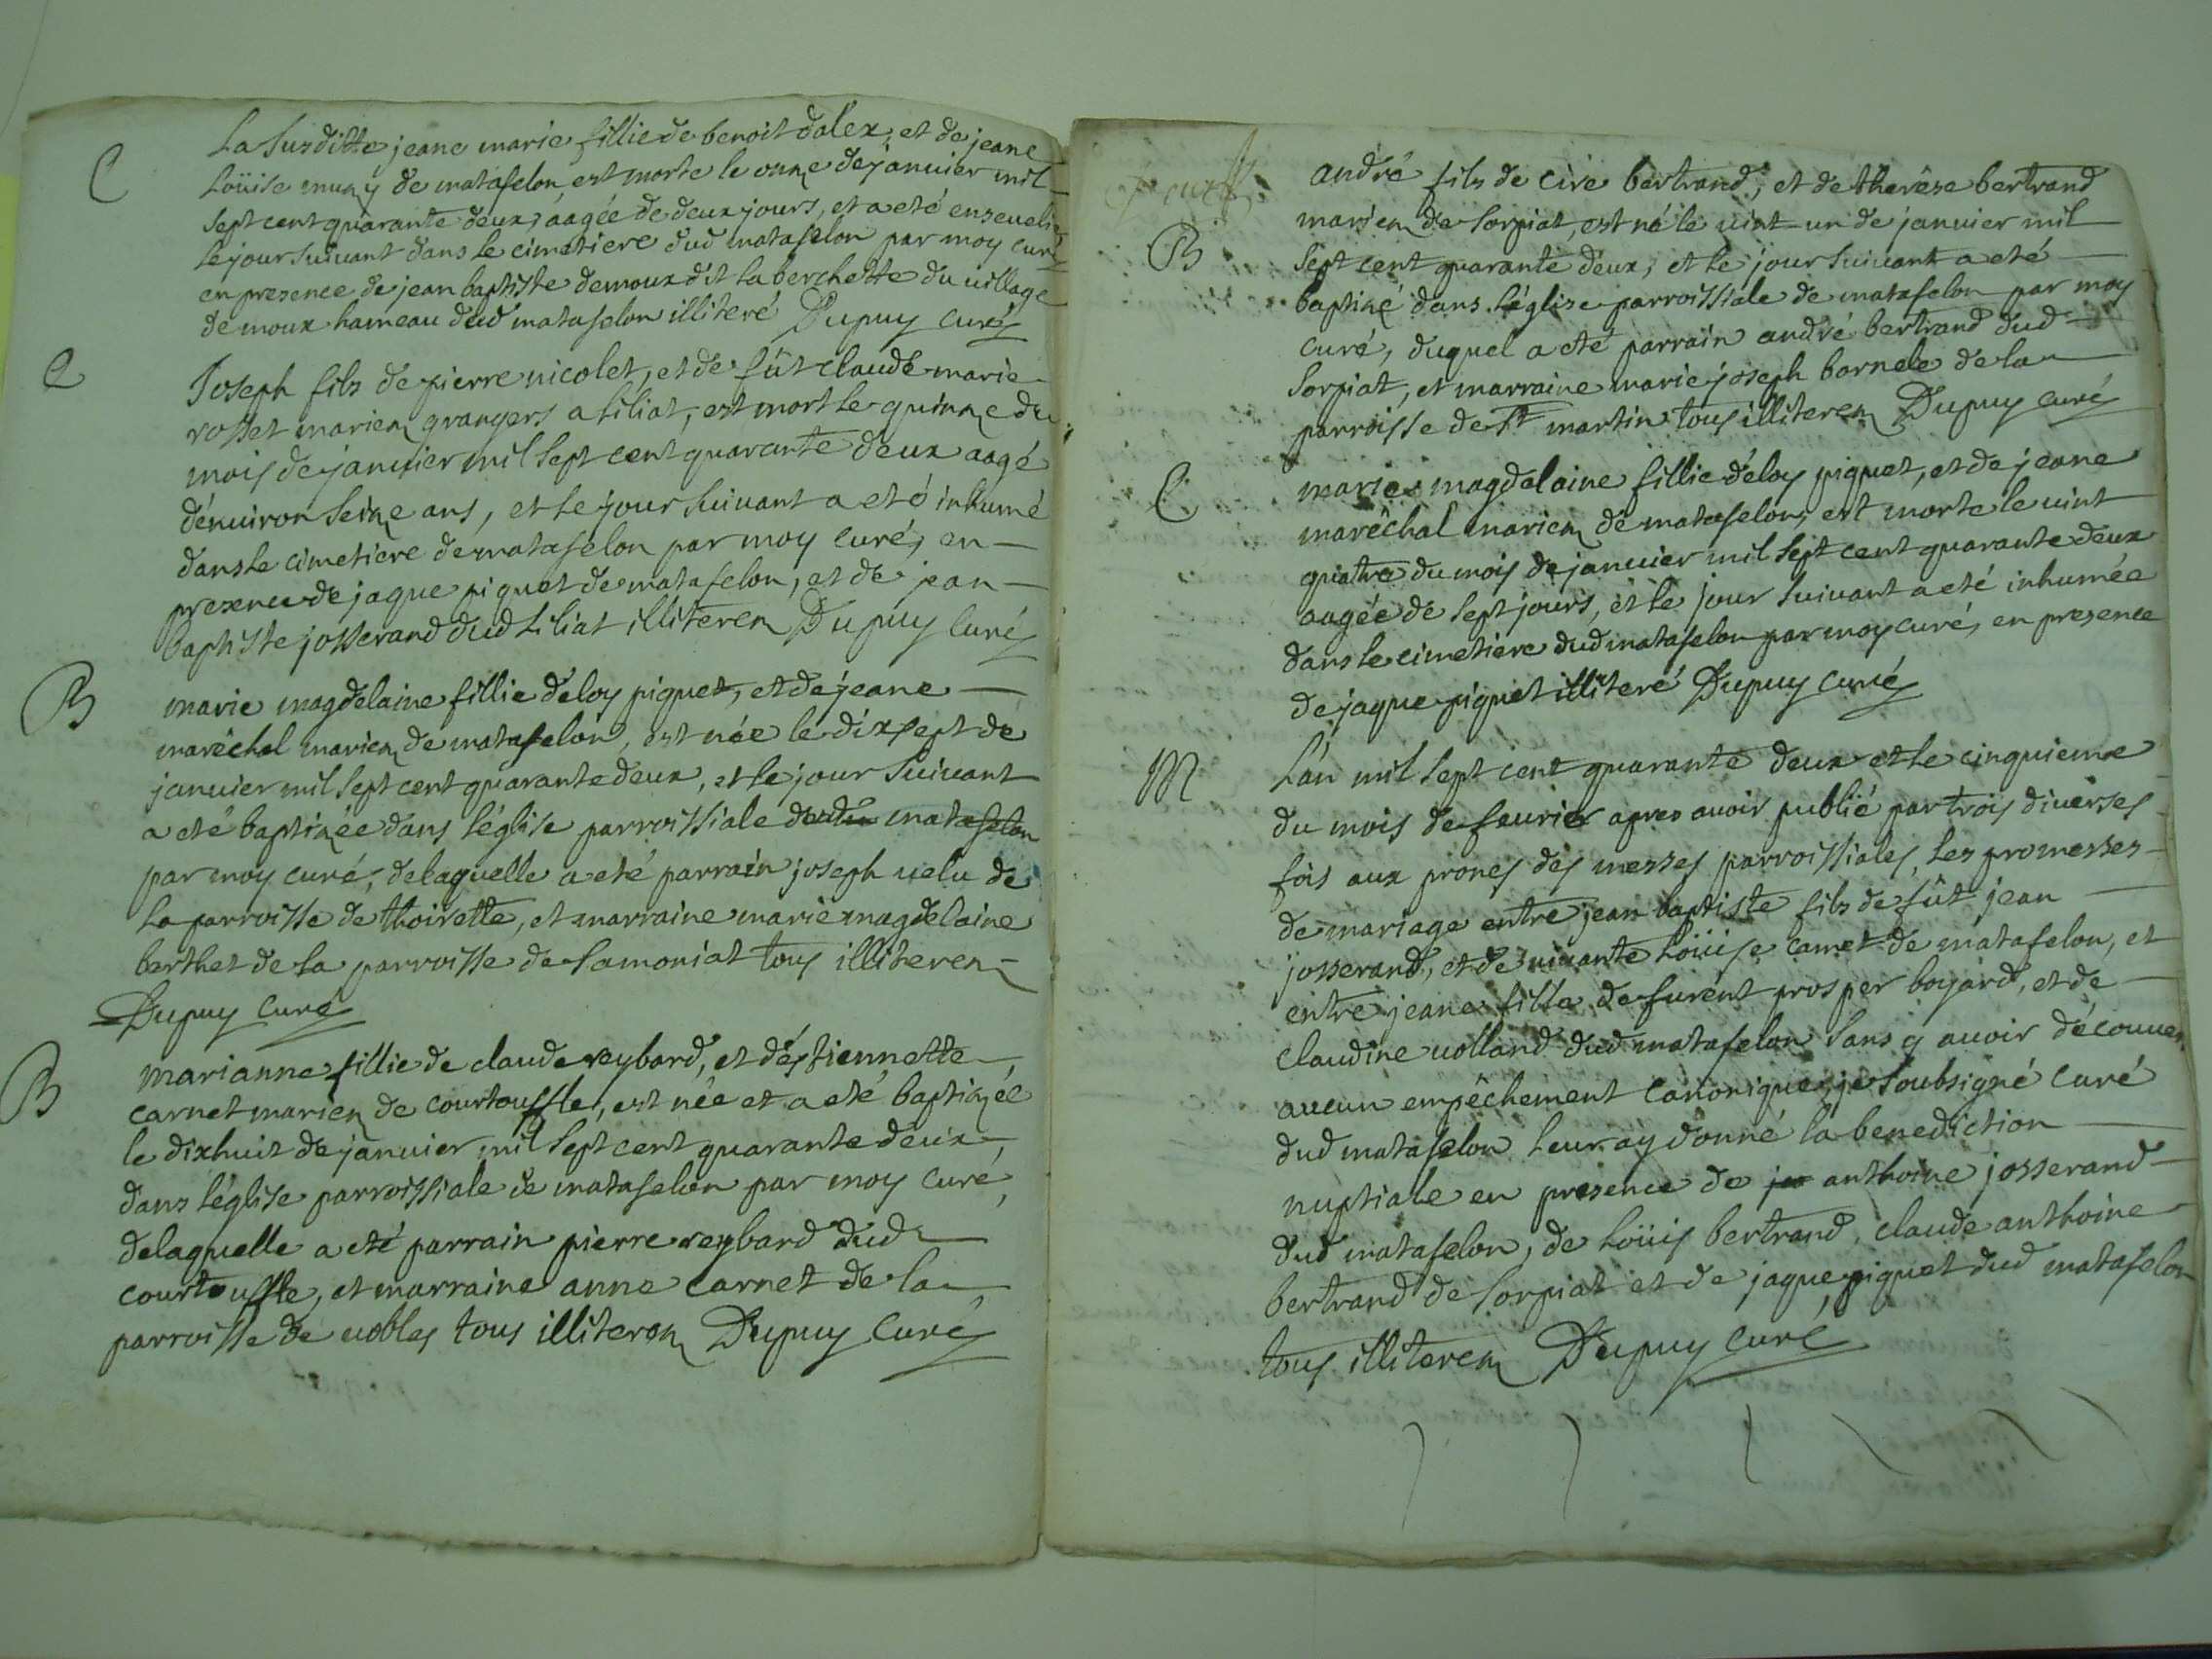 C
La susditte jeane marie fillie de benoit dalex, et de jeane
Loüise muzy de matafelon, est morte le onze de januier mil
sept cent quarante deux, aagée de deux jours, et a eté enseuelie
le jour suiuant dans le cimetiere dud matafelon par moy curé
en presence de jean baptiste demoux dit la berchette du uillage
de moux hameau dud matafelon illiteré Dupuy curé
C
Joseph fils de pierre nicolet, et de fût claude marie
rosset mariez grangers a siliat, est mort le quinze du
mois de januier mil sept cent quarante deux aagé
d'enuiron seize ans, et le jour suiuant a eté inhumé
dans le cimetiere de matafelon par moy curé, en
presence de jaque piquet de matafelon, et de jean
baptiste josserand dud siliat illiterez Dupuy curé
B
marie magdelaine fillie d'eloy piquet, et de jeane
maréchal mariez de matafelon, est née le dixsept de
januier mil sept cent quarante deux, et le jour suiuant
a eté baptizée dans l'église parroissiale matafelon
par moy curé, de laquelle a eté parrain joseph uelu de
la parroisse de thoirette, et marraine marie magdelaine
berthet de la parroisse de samoniat tous illiterez
Dupuy curé
B
marianne fillie de claude reybard, et d'éstiennette
carnet mariez de courtouffle, est née et a eté baptizée
le dixhuit de januier mil sept cent quarante deux,
dans l'église parroissiale de matafelon par moy curé,
de laquelle a eté parrain pierre reybard dud
courtouffle, et marraine anne carnet de la
parroisse de uobles tous illiterez Dupuy curé
B
andré fils de cire bertrand, et de therése bertrand
mariez de sorpiat, est né le uint un de januier mil
sept cent quarante deux, et le jour suiuant a eté
baptizé dans l'église parroissiale de matafelon par moy
curé, duquel a eté parrain andré bertrand dud
sorpiat, et marraine marie joseph bornele de la
parroisse de St martin tous illiterez Dupuy curé
C
marie magdelaine fillie d'eloy piquet, et de jeane
maréchal mariez de matafelon, est morte le uint
quatre du mois de januier mil sept cent quarante deux
aagée de sept jours, et le jour suiuant a eté inhumée
dans le cimetiere dud matafelon par moy curé, en presence
de jaque piquet illiteré Dupuy curé
M
L'an mil sept cent quarante deux et le cinquieme
du mois de feurier apres auoir publié par trois diuerses
fois aux prones des messes parroissiales, les promesses
de mariage entre jean baptiste fils de fût jean
josserand, et de uiuante Loüise carnet de matafelon, et
entre jeane fille de furent prosper boyard, et de
claudine uolland dud matafelon sans y auoir découuert
aucun empêchement canonique, je soubsigné curé
dud matafelon leur ay donné la benediction
nuptiale en presence de anthoine josserand
dud matafelon, de Loüis bertrand, claude anthoine
bertrand de sorpiat et de jaque piquet dud matafelon
tous illiterez Dupuy curé